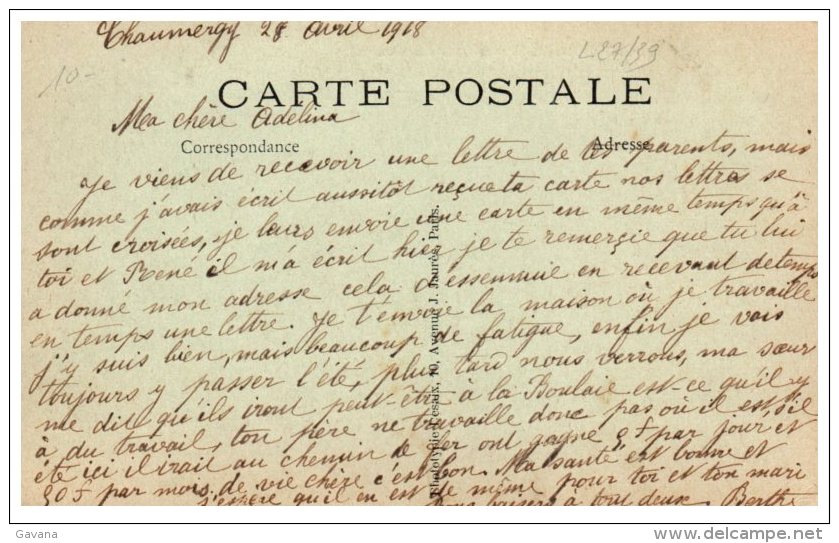 Chaumergy 28 avril 1918
L27/39
10-
CARTE POSTALE
Ma chère Adelina
Correspondance
Adresse
Je viens de recevoir une lettre de tes parents, mais
comme j'avais écrit aussitôt reçue ta carte nos lettres se
sont croisées, je leurs envoie une carte en même temps qu'à
toi et René il m'a écrit hier, je te remerçie que tu lui
a donné mon adresse cela en recevant de temps
en temps une lettre. Je t'envoie la maison où je travaille
j'y suis bien, mais beaucoup de fatigue, enfin je vais
toujours y passer l'été, plus tard nous verrons, ma sœur
me dit qu'ils iront peut-être à la Boulaie est-ce qu'il y
à du travail, ton père ne travaille donc pas où il est, s'il
été ici il irait au chemin de fer ont gagne 9f par jour et
50f par mois de vie chère c'est bon. Ma santé est bonne et
j'espère qu'il en est de même pour toi et ton mari
bons baisers à tout deux Berthe
Phototypie Desaix, 10, Avenue J. Jaurès, Paris.
Gavana
delcampe.net